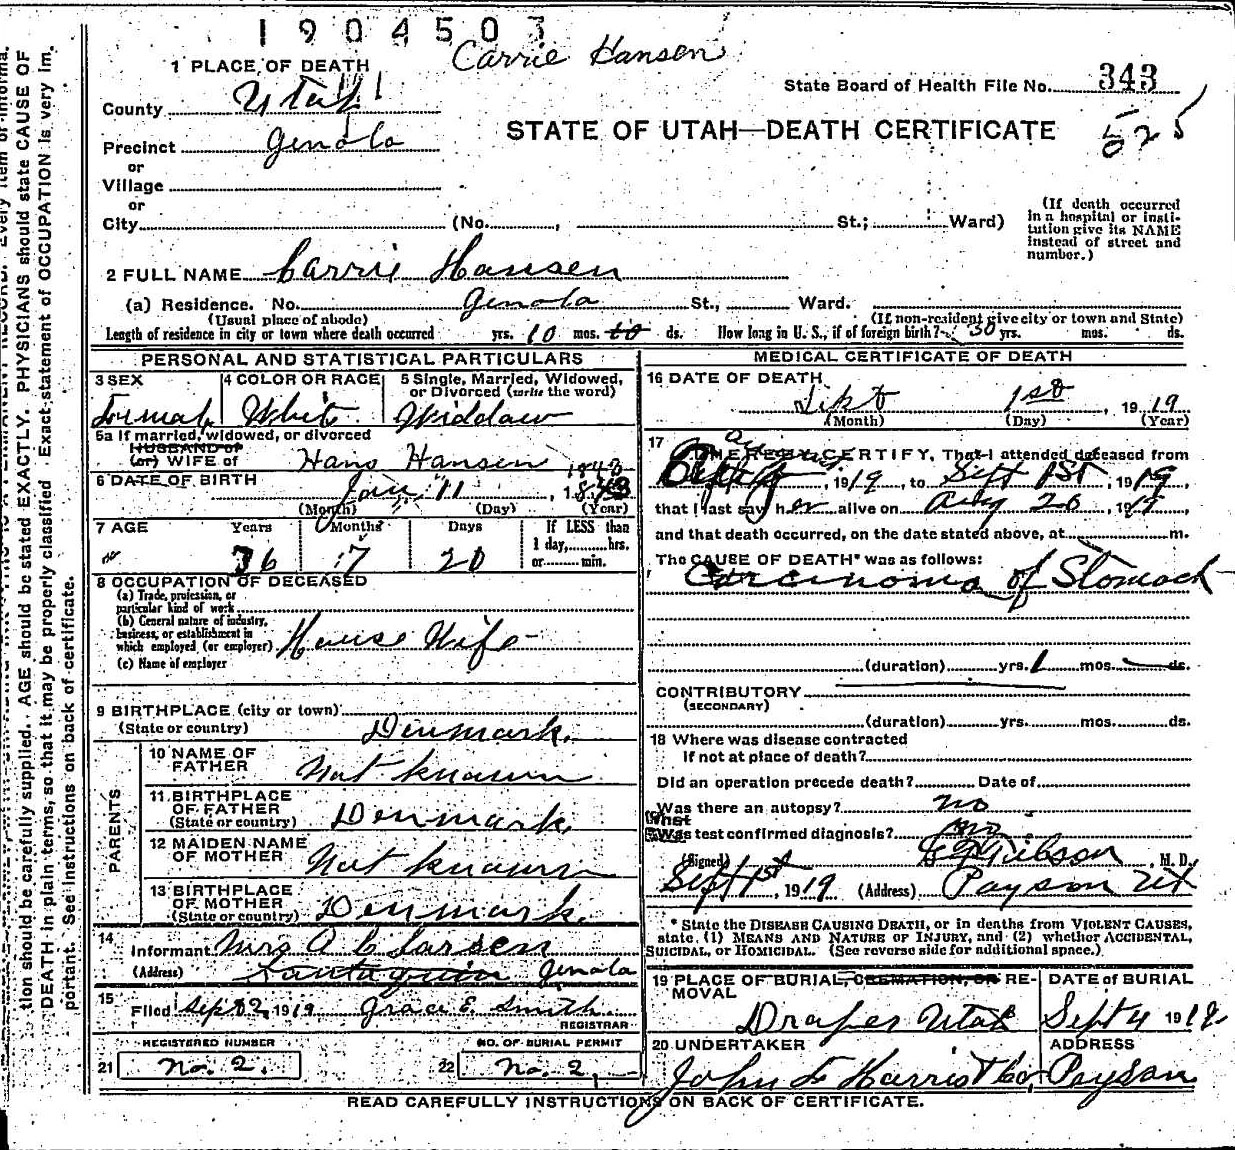 1904503
Carrie Hansen
1 PLACE OF DEATH
State Board of Health File No. 343
County Utah
STATE OF UTAH—DEATH CERTIFICATE
525
Precinct Genola
or
Village
or
City (No. , St.; Ward)
(If death occurred
in a hospital or insti-
tution give its NAME
instead of street and
number.)
2 FULL NAME Carrie Hansen
(a) Residence. No. Genola St., Ward.
(Usual place of abode) (If non-resident give city or town and State)
Length of residence in city or town where death occurred yrs. 10 mos. ds. How long in U. S., if of foreign birth? 30 yrs. mos. ds.
PERSONAL AND STATISTICAL PARTICULARS
3 SEX 4 COLOR OR RACE 5 Single, Married, Widowed,
or Divorced (write the word)
Femal White Widdaw
5a If married, widowed, or divorced
HUSBAND of
(or) WIFE of Hans Hansen
1843
6 DATE OF BIRTH Jan 11, 1843
(Month) (Day) (Year)
7 AGE Years Months Days If LESS than
1 day, hrs.
or min.
76 7 20
8 OCCUPATION OF DECEASED
(a) Trade, profession, or
particular kind of work
(b) General nature of industry,
business, or establishment in
which employed (or employer) House Wife
(c) Name of employer
9 BIRTHPLACE (city or town)
(State or country) Denmark.
PARENTS
10 NAME OF
FATHER Not known
11 BIRTHPLACE
OF FATHER
(State or country) Denmark
12 MAIDEN NAME
OF MOTHER Not known
13 BIRTHPLACE
OF MOTHER
(State or country) Denmark.
14
Informant Mrs A C Larsen
(Address) Santaquin Genola
15
Filed Sep 2, 1919 Grace E. Smith.
REGISTRAR
REGISTERED NUMBER NO. OF BURIAL PERMIT
21 No. 2. 22 No. 2.
MEDICAL CERTIFICATE OF DEATH
16 DATE OF DEATH
Sept 1st, 1919
(Month) (Day) (Year)
17 I HEREBY CERTIFY, That I attended deceased from
, 1919, to Sept 1st, 1919,
that I last saw her alive on Aug 20, 1919,
and that death occurred, on the date stated above, at m.
The CAUSE OF DEATH* was as follows:
Carcinoma of Stomach
(duration) yrs. 1 mos. ds.
CONTRIBUTORY
(SECONDARY)
(duration) yrs. mos. ds.
18 Where was disease contracted
If not at place of death?
Did an operation precede death? Date of
Was there an autopsy? no
What
Was test confirmed diagnosis? no
(Signed) Gibson, M. D.
Sept 1st, 1919 (Address) Payson Ut
* State the DISEASE CAUSING DEATH, or in deaths from VIOLENT CAUSES,
state (1) MEANS AND NATURE OF INJURY, and (2) whether ACCIDENTAL,
SUICIDAL, or HOMICIDAL. (See reverse side for additional space.)
19 PLACE OF BURIAL, CREMATION, OR RE- DATE of BURIAL
MOVAL
Draper Utah Sept 4 1919
20 UNDERTAKER ADDRESS
John F Harris & Co, Payson
READ CAREFULLY INSTRUCTIONS ON BACK OF CERTIFICATE.
tion should be carefully supplied. AGE should be stated EXACTLY. PHYSICIANS should state CAUSE OF
DEATH in plain terms, so that it may be properly classified. Exact statement of OCCUPATION is very im-
portant. See instructions on back of certificate.